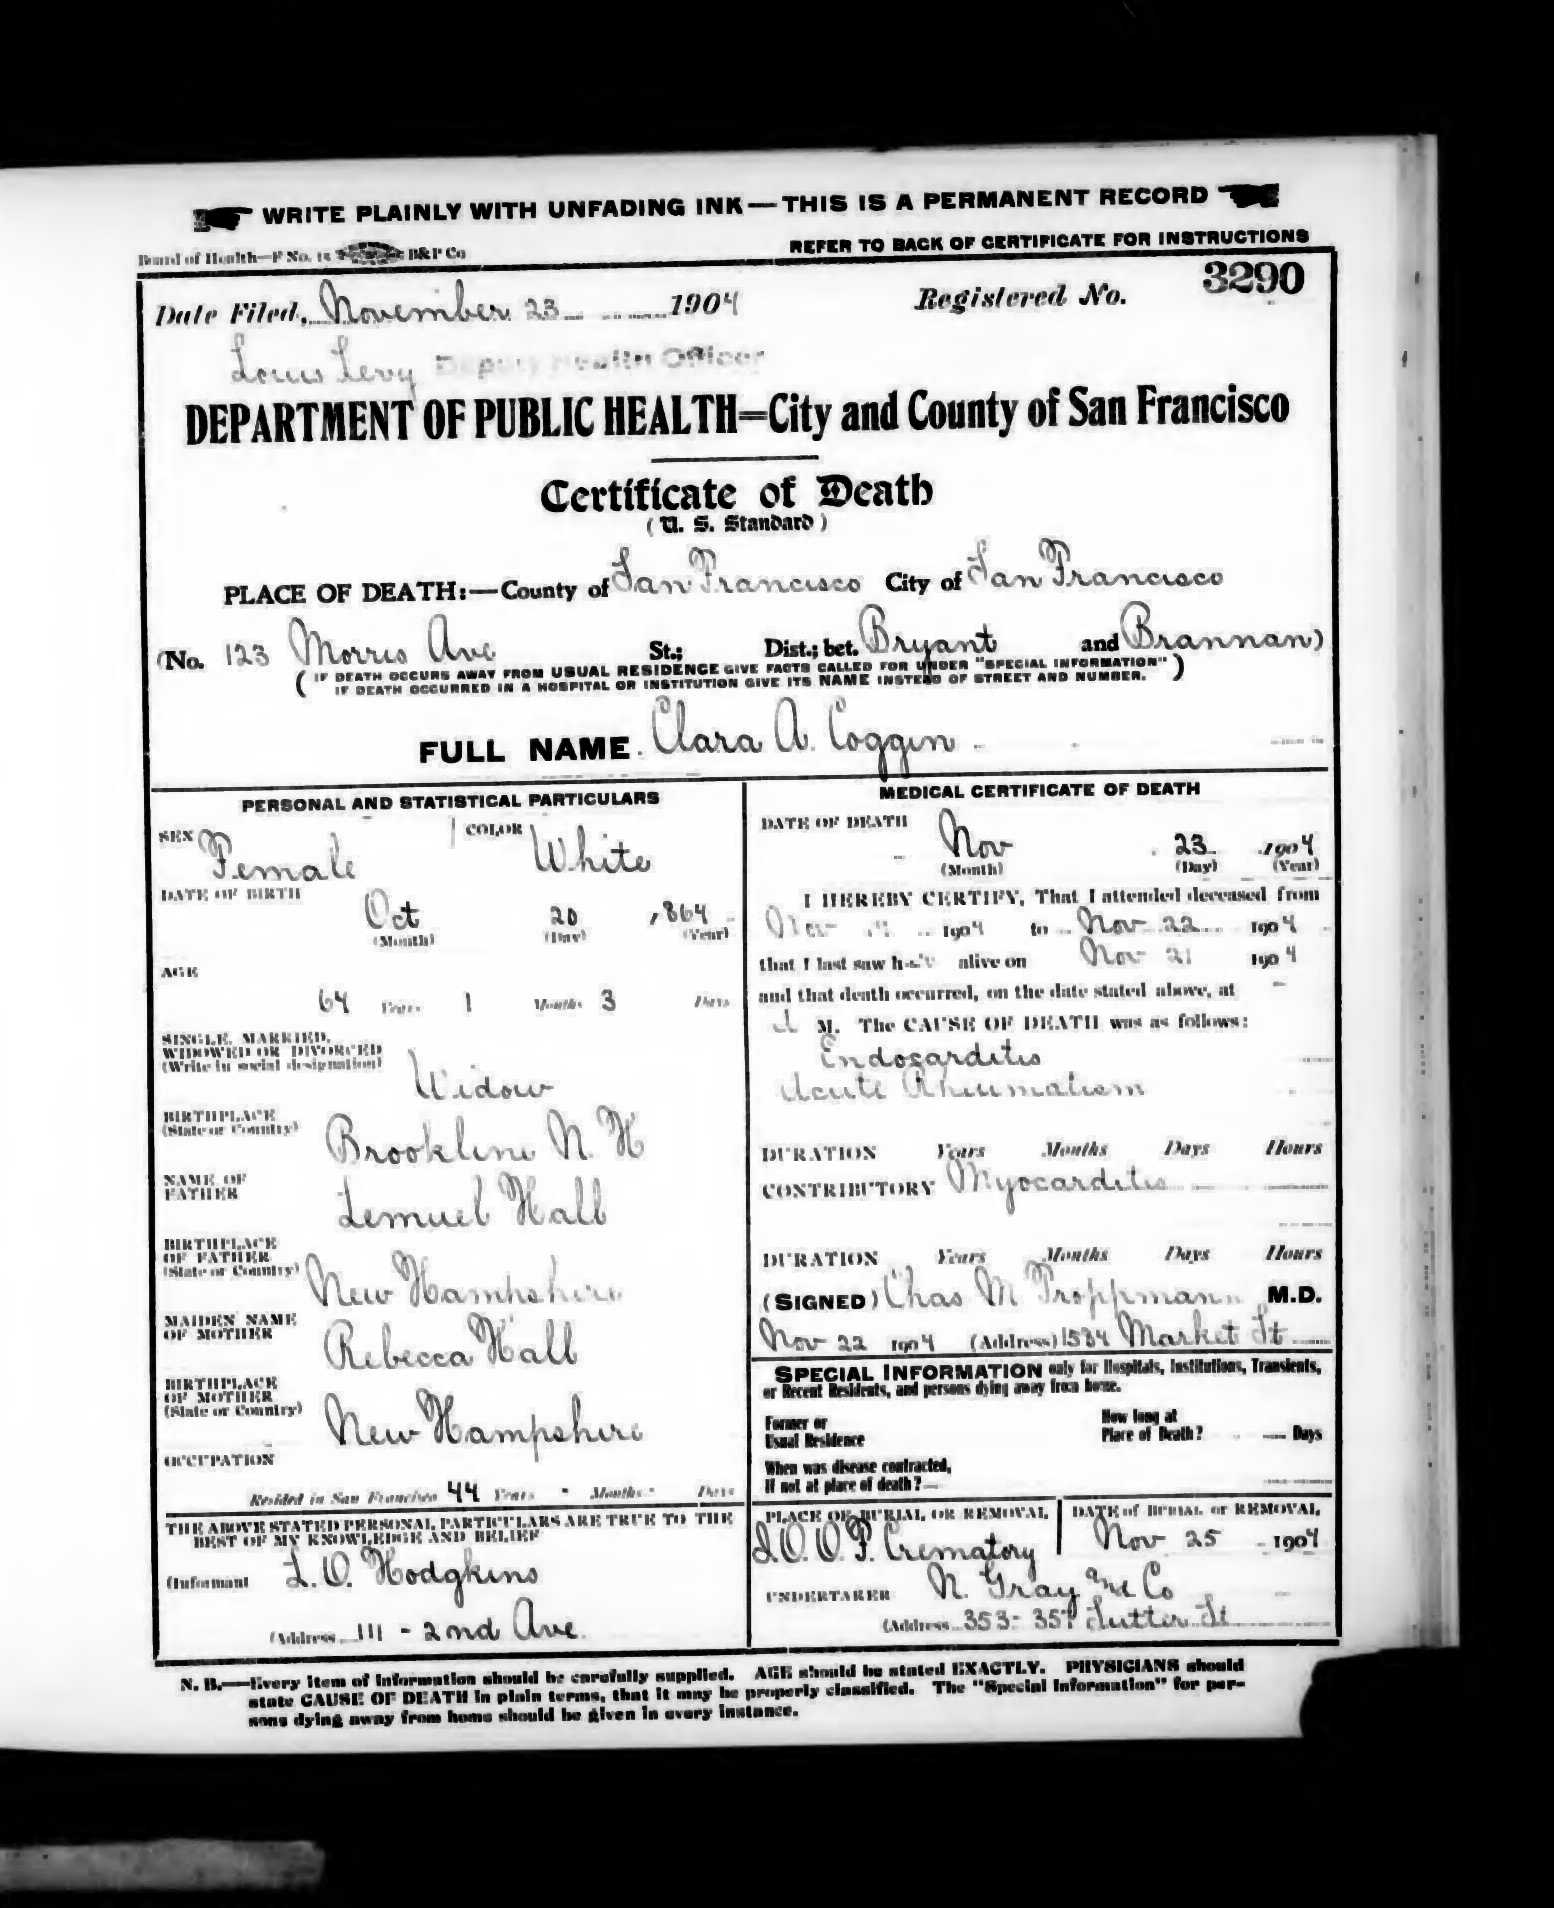 WRITE PLAINLY WITH UNFADING INK — THIS IS A PERMANENT RECORD
Board of Health—F No. 15 B&P Co
REFER TO BACK OF CERTIFICATE FOR INSTRUCTIONS
Date Filed, November 23 1904 Registered No. 3290
Louis Levy Deputy Health Officer
DEPARTMENT OF PUBLIC HEALTH=City and County of San Francisco
Certificate of Death
(U. S. Standard)
PLACE OF DEATH:—County of San Francisco City of San Francisco
(No. 123 Morris Ave St.; Dist.; bet. Bryant and Brannan)
(IF DEATH OCCURS AWAY FROM USUAL RESIDENCE GIVE FACTS CALLED FOR UNDER "SPECIAL INFORMATION"
IF DEATH OCCURRED IN A HOSPITAL OR INSTITUTION GIVE ITS NAME INSTEAD OF STREET AND NUMBER.)
FULL NAME Clara A. Coggin
PERSONAL AND STATISTICAL PARTICULARS
SEX Female COLOR White
DATE OF BIRTH
Oct 20 1864
(Month) (Day) (Year)
AGE
64 Years 1 Months 3 Days
SINGLE, MARRIED,
WIDOWED OR DIVORCED
(Write in social designation)
Widow
BIRTHPLACE
(State or Country) Brookline N. H
NAME OF
FATHER Lemuel Hall
BIRTHPLACE
OF FATHER
(State or Country) New Hampshire
MAIDEN NAME
OF MOTHER Rebecca Hall
BIRTHPLACE
OF MOTHER
(State or Country) New Hampshire
OCCUPATION
Resided in San Francisco 44 Years - Months - Days
THE ABOVE STATED PERSONAL PARTICULARS ARE TRUE TO THE
BEST OF MY KNOWLEDGE AND BELIEF
(Informant L. O. Hodgkins
(Address 111 - 2nd Ave.
MEDICAL CERTIFICATE OF DEATH
DATE OF DEATH
Nov 23 1904
(Month) (Day) (Year)
I HEREBY CERTIFY, That I attended deceased from
Nov 1904 to Nov 22 1904
that I last saw her alive on Nov 21 1904
and that death occurred, on the date stated above, at
M. The CAUSE OF DEATH was as follows:
Endocarditis
Acute Rheumatism
DURATION Years Months Days Hours
CONTRIBUTORY Myocarditis
DURATION Years Months Days Hours
(SIGNED) Chas M Troppmann M.D.
Nov 22 1904 (Address) 1534 Market St
SPECIAL INFORMATION only for Hospitals, Institutions, Transients,
or Recent Residents, and persons dying away from home.
Former or
Usual Residence
How long at
Place of Death? Days
When was disease contracted,
If not at place of death?
PLACE OF BURIAL OR REMOVAL
I.O.O.F. Crematory
DATE of BURIAL or REMOVAL
Nov 25 1904
UNDERTAKER N. Gray and Co
(Address 353-357 Sutter St
N. B.—Every item of information should be carefully supplied. AGE should be stated EXACTLY. PHYSICIANS should
state CAUSE OF DEATH in plain terms, that it may be properly classified. The "Special Information" for per-
sons dying away from home should be given in every instance.